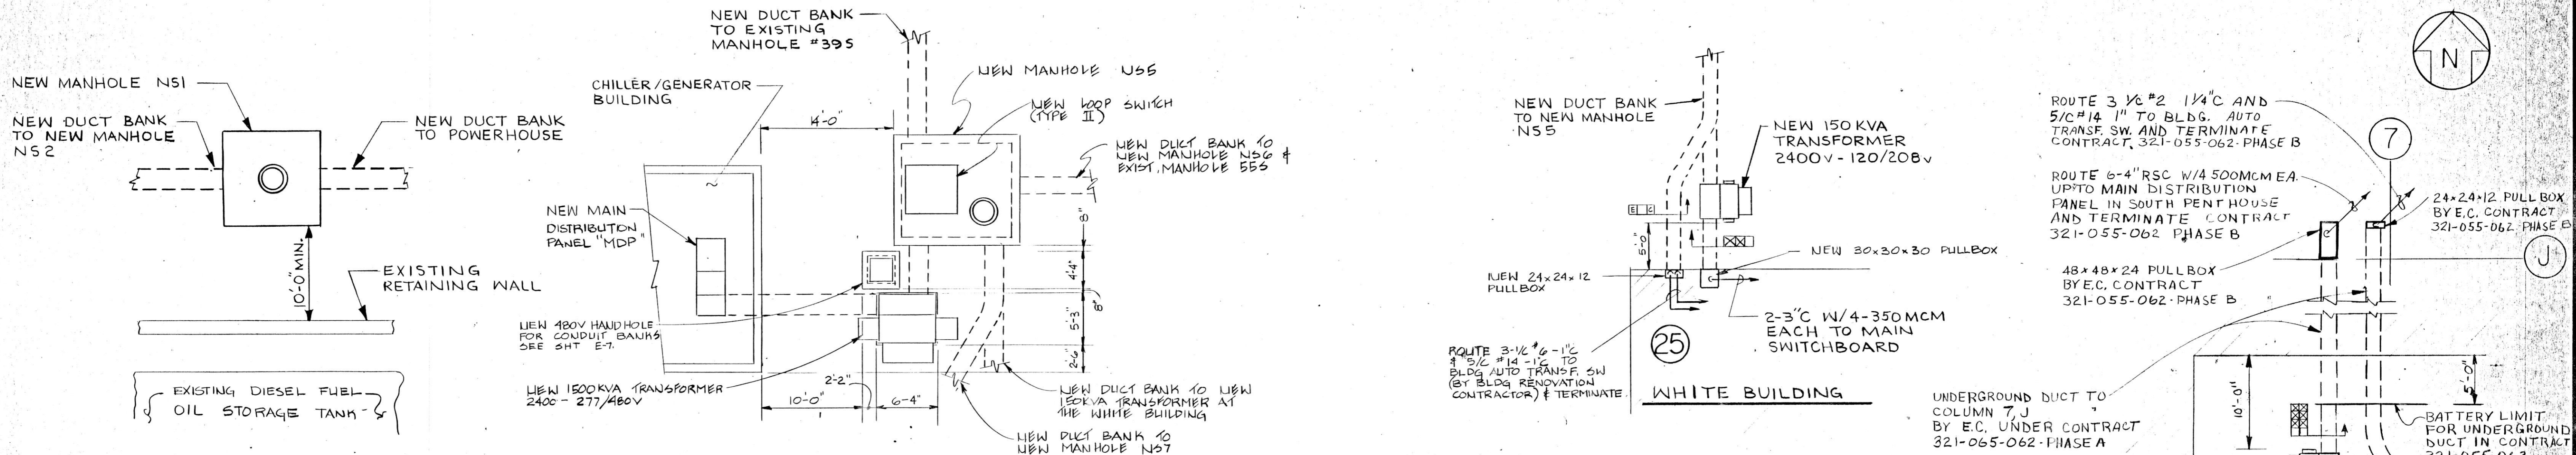 NEW MANHOLE NS1
NEW DUCT BANK
TO NEW MANHOLE
NS2
NEW DUCT BANK
TO POWERHOUSE
10'-0" MIN.
EXISTING
RETAINING WALL
EXISTING DIESEL FUEL
OIL STORAGE TANK
NEW DUCT BANK
TO EXISTING
MANHOLE #39S
CHILLER/GENERATOR
BUILDING
14'-0"
NEW MANHOLE NS5
NEW LOOP SWITCH
(TYPE II)
NEW DUCT BANK TO
NEW MANHOLE NS6 &
EXIST. MANHOLE 55S
NEW MAIN
DISTRIBUTION
PANEL "MDP"
8"
4'-4"
8"
5'-3"
2'-6"
NEW 480V HANDHOLE
FOR CONDUIT BANKS
SEE SHT E-7.
NEW 1500KVA TRANSFORMER
2400 - 277/480V
2'-2"
10'-0"
6'-4"
NEW DUCT BANK TO NEW
150KVA TRANSFORMER AT
THE WHITE BUILDING
NEW DUCT BANK TO
NEW MANHOLE NS7
NEW DUCT BANK
TO NEW MANHOLE
NS5
NEW 150 KVA
TRANSFORMER
2400V - 120/208V
E C
5'-0"
NEW 30x30x30 PULLBOX
NEW 24x24x12
PULLBOX
2-3"C W/4-350 MCM
EACH TO MAIN
SWITCHBOARD
25
ROUTE 3-1/C #6-1"C
& 5/C #14-1"C TO
BLDG AUTO TRANSF. SW
(BY BLDG RENOVATION
CONTRACTOR) & TERMINATE
WHITE BUILDING
N
ROUTE 3 1/C #2 1 1/4"C AND
5/C #14 1" TO BLDG. AUTO
TRANSF. SW. AND TERMINATE
CONTRACT. 321-055-062-PHASE B
7
ROUTE 6-4" RSC W/4 500MCM EA.
UP TO MAIN DISTRIBUTION
PANEL IN SOUTH PENTHOUSE
AND TERMINATE CONTRACT
321-055-062 PHASE B
24x24x12 PULL BOX
BY E.C. CONTRACT
321-055-062 PHASE B
J
48x48x24 PULLBOX
BY E.C. CONTRACT
321-055-062-PHASE B
UNDERGROUND DUCT TO
COLUMN 7, J
BY E.C. UNDER CONTRACT
321-065-062-PHASE A
10'-0"
5'-0"
BATTERY LIMIT
FOR UNDERGROUND
DUCT IN CONTRACT